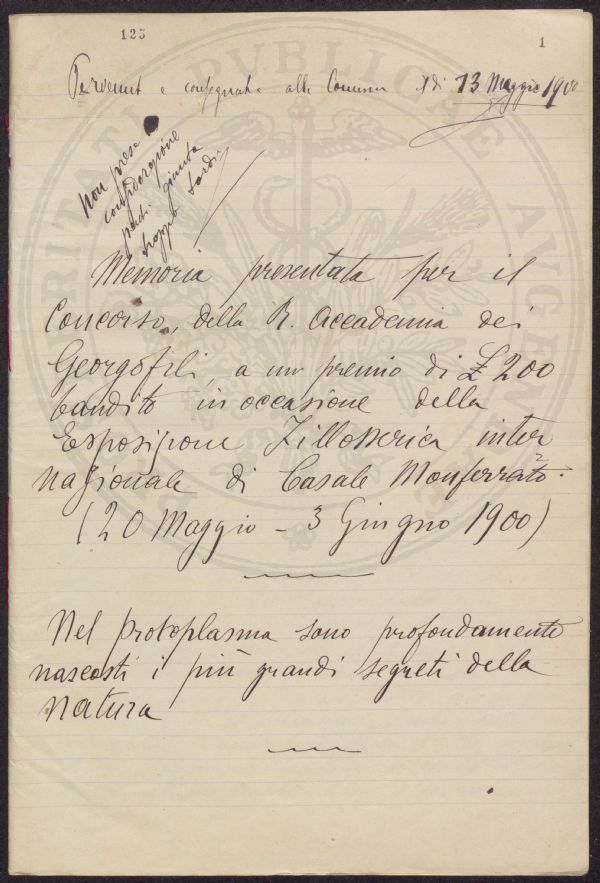 123
1
Pervenut e consegnata alla Comm. il dì 13 Maggio 1900
Non presa
considerazione
perché giunta
troppo tardi
Memoria presentata per il
Concorso, della R. Accademia dei
Georgofili, a un premio di £ 200
bandito in occasione della
Esposizione Fillosserica inter
nazionale di Casale Monferrato.
(20 Maggio - 3 Giugno 1900)
Nel protoplasma sono profondamente
nascosti i più grandi segreti della
natura